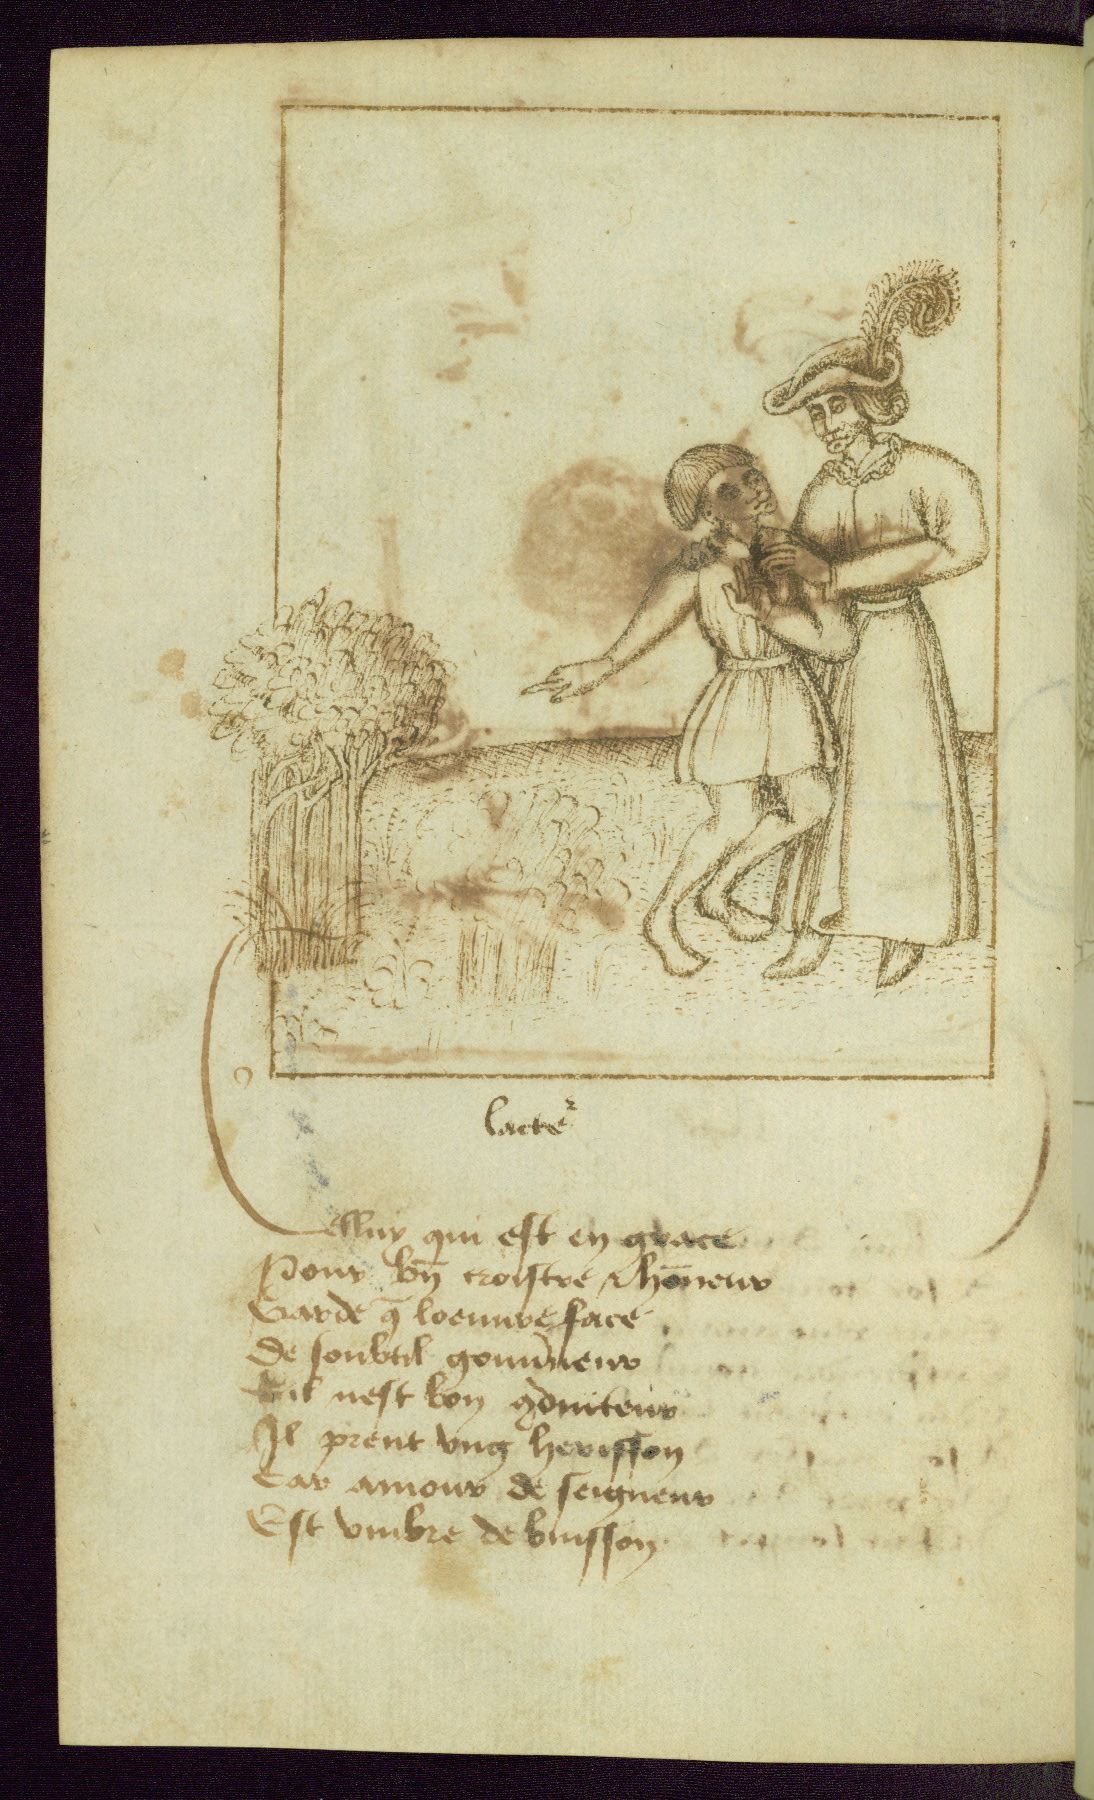 lacteᷣ
elluy qui est en grace
Pour bn̄ croistre lhōneur
Garde q̄ loeuure face
De soubtil gouu̇neur
Sil nest bon ꝯduiteur
Il prent vng herisson
Car amour de seigneur
Est vmbre de buisson